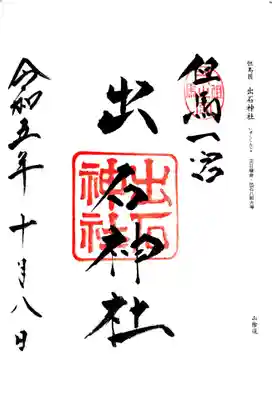 但馬国 出石神社
山陰道
但馬一宮
出石神社
出石神社
令和五年十月八日